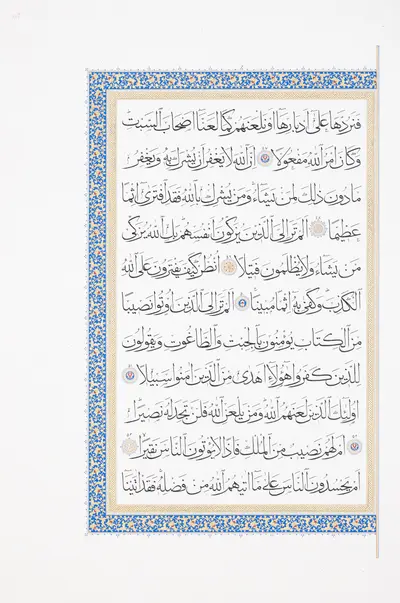 فنردها على أدبارها أو نلعنهم كما لعنا أصحاب السبت
وكان أمر الله مفعولا إن الله لا يغفر أن يشرك به ويغفر
ما دون ذلك لمن يشاء ومن يشرك بالله فقد افترى إثما
عظيما ألم تر إلى الذين يزكون أنفسهم بل الله يزكي
من يشاء ولا يظلمون فتيلا انظر كيف يفترون على الله
الكذب وكفى به إثما مبينا ألم تر إلى الذين أوتوا نصيبا
من الكتاب يؤمنون بالجبت والطاغوت ويقولون
للذين كفروا هؤلاء أهدى من الذين آمنوا سبيلا
أولئك الذين لعنهم الله ومن يلعن الله فلن تجد له نصيرا
أم لهم نصيب من الملك فإذا لا يؤتون الناس نقيرا
أم يحسدون الناس على ما آتيهم الله من فضله فقد آتينا